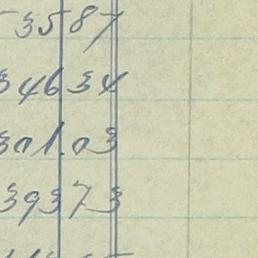 3587
34634
301.03
39373